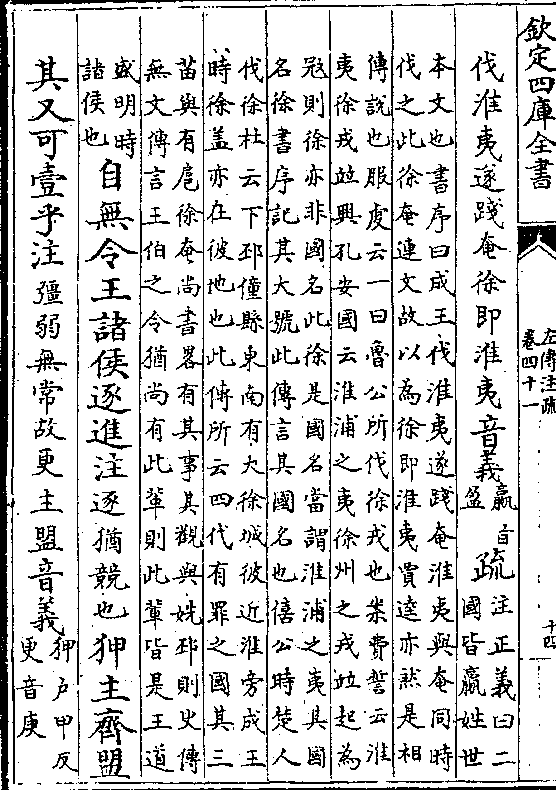 欽定四庫全書
左傳注疏
卷四十一
十四
伐淮夷遂踐奄徐即淮夷音義嬴音盈疏注正義曰二國皆嬴姓世
本文也書序曰成王伐淮夷遂踐奄淮夷與奄同時
伐之此徐奄連文故以為徐即淮夷賈逵亦然是相
傳說也服虔云一曰魯公所伐徐戎也案費誓云淮
夷徐戎竝興孔安國云淮浦之夷徐州之戎竝起為
冦則徐亦非國名此徐是國名當謂淮浦之夷其國
名徐書序記其大號此傳言其國名也僖公時楚人
伐徐杜云下邳僮縣東南有大徐城彼近淮旁成王
時徐蓋亦在彼地也此傳所云四代有罪之國其三
苗與有扈徐奄尚書畧有其事其觀與姺邳則史傳
無文傳言王伯之令猶尚有此輩則此輩皆是王道
盛明時諸侯也自無令王諸侯逐進注逐猶競也狎主齊盟
其又可壹乎注彊弱無常故更主盟音義狎户甲反更音庚